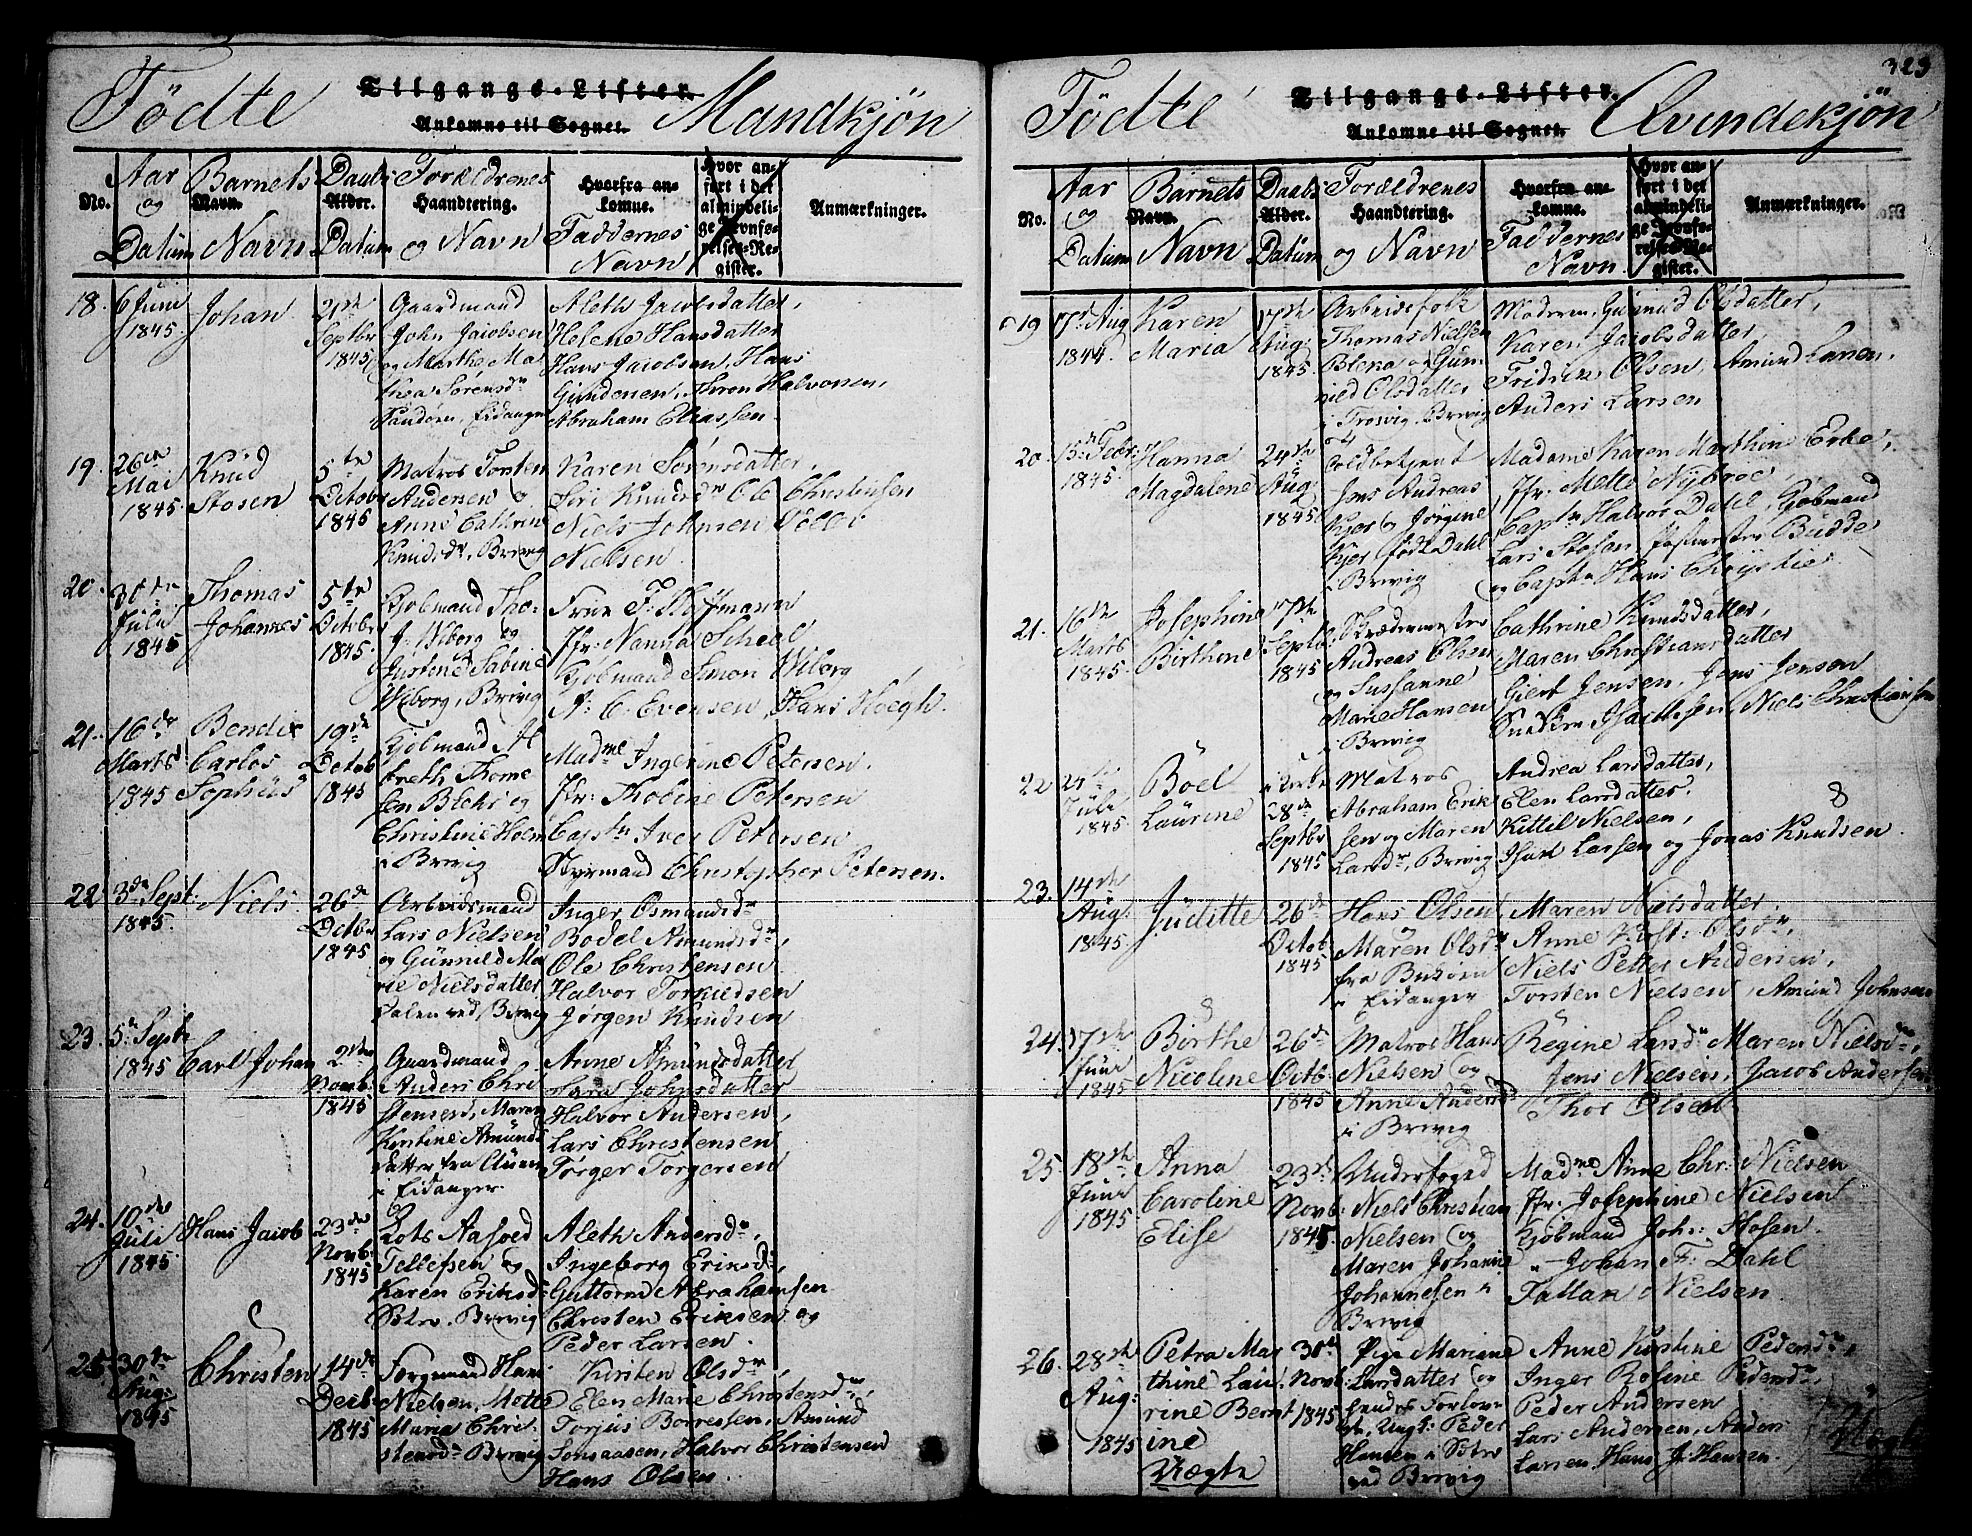 323
Födte Tilgangs-Lister. Mandkjön
Ankomne til Sognet.
No. Aar og Datum Barnets Navn. Navn Daabs Alder. Datum Forældrenes Haandtering. og Navn Hvorfra ankomne. Faddernes Navn Hvor anført i det almindelige Jevnførelses-Register. Anmærkninger.
18. 6 Juni 1845 Johan 21de Septbr 1845
Gaardmand
John Jacobsen
og Marthe Ma
thea Sörensdr
Sandöen, Eidanger
Aleth Jacobsdatter,
Helene Hansdatter
Hans Jacobsen, Hans
Gundersen, Thron Halvorsen,
Abraham Eliassen.
19. 26de Mai 1845 Knud Stosen 5te Octobr 1845
Matros Torsten
Andersen og
Anne Cathrine
Knudsdr, Brevig
Karen Sörensdatter,
Siri Knudsdr Ole Christensen
Niels Johnsen
Nielsen.
20. 30te Julii 1845 Thomas Johannes 5te Octobr 1845
Kjöbmand Tho:
J: Wiborg og
Justene Sabine
Wiborg, Brevig
Frue F: Hoffmann
Jfr: Nanna Scheel
Kjöbmand Simon Wiborg
A. C. Evensen, Hans Höegh.
21. 16de Marts 1845 Bendix Carlos Sophus 19de Octob 1845
Kjöbmand
Thome
sen Blehr og
Christine Holm
i Brevig
Madme Ingerine Petersen.
Jfr: Thobine Petersen
Captn Iver Petersen
Styrmand Christopher Petersen.
22 3de Sept: 1845. Niels. 26de Octbr 1845
Arbeidsmand
Lars Nielsen
og Gunnild Ma
rie Nielsdatter
Dalen ved Brevig
Inger Osmundsdr
Bodel Amundsdr,
Ole Christensen
Halvor Torkildsen
Jörgen Knudsen
23. 5te Septr 1845 Carl Johan 2den Novb: 1845
Gaardmand
Anders Chri
stensen, Maren
Kirstine Amunds
datter fra
i Eidanger
Anne Amundsdatter
Johnsdatter
Halvor Andersen,
Lars Christensen
Törger Törgersen
24. 10de Juli 1845 Hans Jacob 23de Novb: 1845
Lots Aasoed
Tellefsen og
Karen Eriksd:
Strö. Brevig
Aleth Andersdr,
Ingeborg Eriksd:
Guttorm Abrahamsen
Christen Eriksen og
Peder Larsen.
25 30te Aug: 1845 Christen 14de Decbr 1845
Færgemand Hans
Nielsen, Mette
Maria Chri
stensdr Brevig
Kirsten Olsdr
Elen Marie Christensdr,
Torjus Borresen, Amund
Halvor Christensen
Hans Olsen.
Födte Tilgangs-Lister. Qvindekjön
Ankomne til Sognet.
No. Aar og Datum Barnets Navn. Navn Daabs Alder. Datum Forældrenes Haandtering. og Navn Hvorfra ankomne. Faddernes Navn Hvor anført i det almindelige Jevnførelses-Register. Anmærkninger.
19 17d Aug 1844. Karen Maria 17de Aug: 1845
Arbeidsfolk
Thomas Nielsen
Blena og Gun
nild Olsdatter
i Trosvig, Brevig
Moderen, Gunnild Olsdatter,
Karen Jacobsdatter,
Fridrik Olsen, Amund Larsen,
Anders Larsen
20. 15de Febr: 1845. Hanna Magdalene 24de Aug: 1845
Toldbetjent
Jens Andreas
Kjer og Jörgine
Kjer född Dahl
i Brevig
Madame Karen Marthin
Jfr: Mette Nybroe,
Captn Halvor Dahl, Kjöbmand
Lars Stosen, Postmester Budde
og Captn Hans Chrystie.
21. 16de Marts 1845 Josephine Birthine 17de Septb 1845
Skrædermester
Andreas Olsen
og Sussanne
Marie Hansen
i Brevig
Cathrine Knudsdatter,
Maren Christiansdatter
Giert Jensen, Jens Jensen
Snedker Isachsen, Niels Christiansen
22 24de Juli 1845. Böel Laurine 28de Septbr 1845
Matros
Abraham Erik
sen og Maren
Larsdr, Brevig
Andrea Larsdatter,
Elen Larsdatter,
Kittil Nielsen,
Isak Larsen og Jonas Knudsen.
23. 14de Aug: 1845. Juditte 26de Octob 1845
Hans Olsen
Maren Olsdr
fra
i Eidanger
Maren Nielsdatter,
Anne Kirst: Olsdr,
Niels Petter Andersen,
Torsten Nielsen, Amund Johnsen
24. 17de Juni 1845 Birthe Nicoline 26de Octb: 1845
Matros Hans
Nielsen og
Anne Andersdr
i Brevig
Regine Larsdr Maren Nielsdr,
Jens Nielsen, Jacob Andersen,
Thor Olsen
25 18de Juni 1845 Anna Caroline Elise 23de Novb: 1845.
Underfoged
Niels Christian
Nielsen og
Maren Johanne
Johannesen i
Brevig
Madme Anne Chr: Nielsen
Jfr: Josephine Nielsen
Kjöbmand Joh: Stosen.
" Johan F: Dahl
Tallak Nielsen.
26. 28de Aug: 1845 Petra Mar thine Lau rine Bernt ine Uægte 30te Novb 1845
Pige Mariane
Larsdatter og
hendes Forlov
ede, Ungk: Peder
Hansen i Strö
ved Brevig
Anne Kirstine Pedersdr,
Inger Rosine Pedersdr,
Peder Andersen
Lars Andersen, Anders
Larsen, Hans J: Hansen.
Uægte